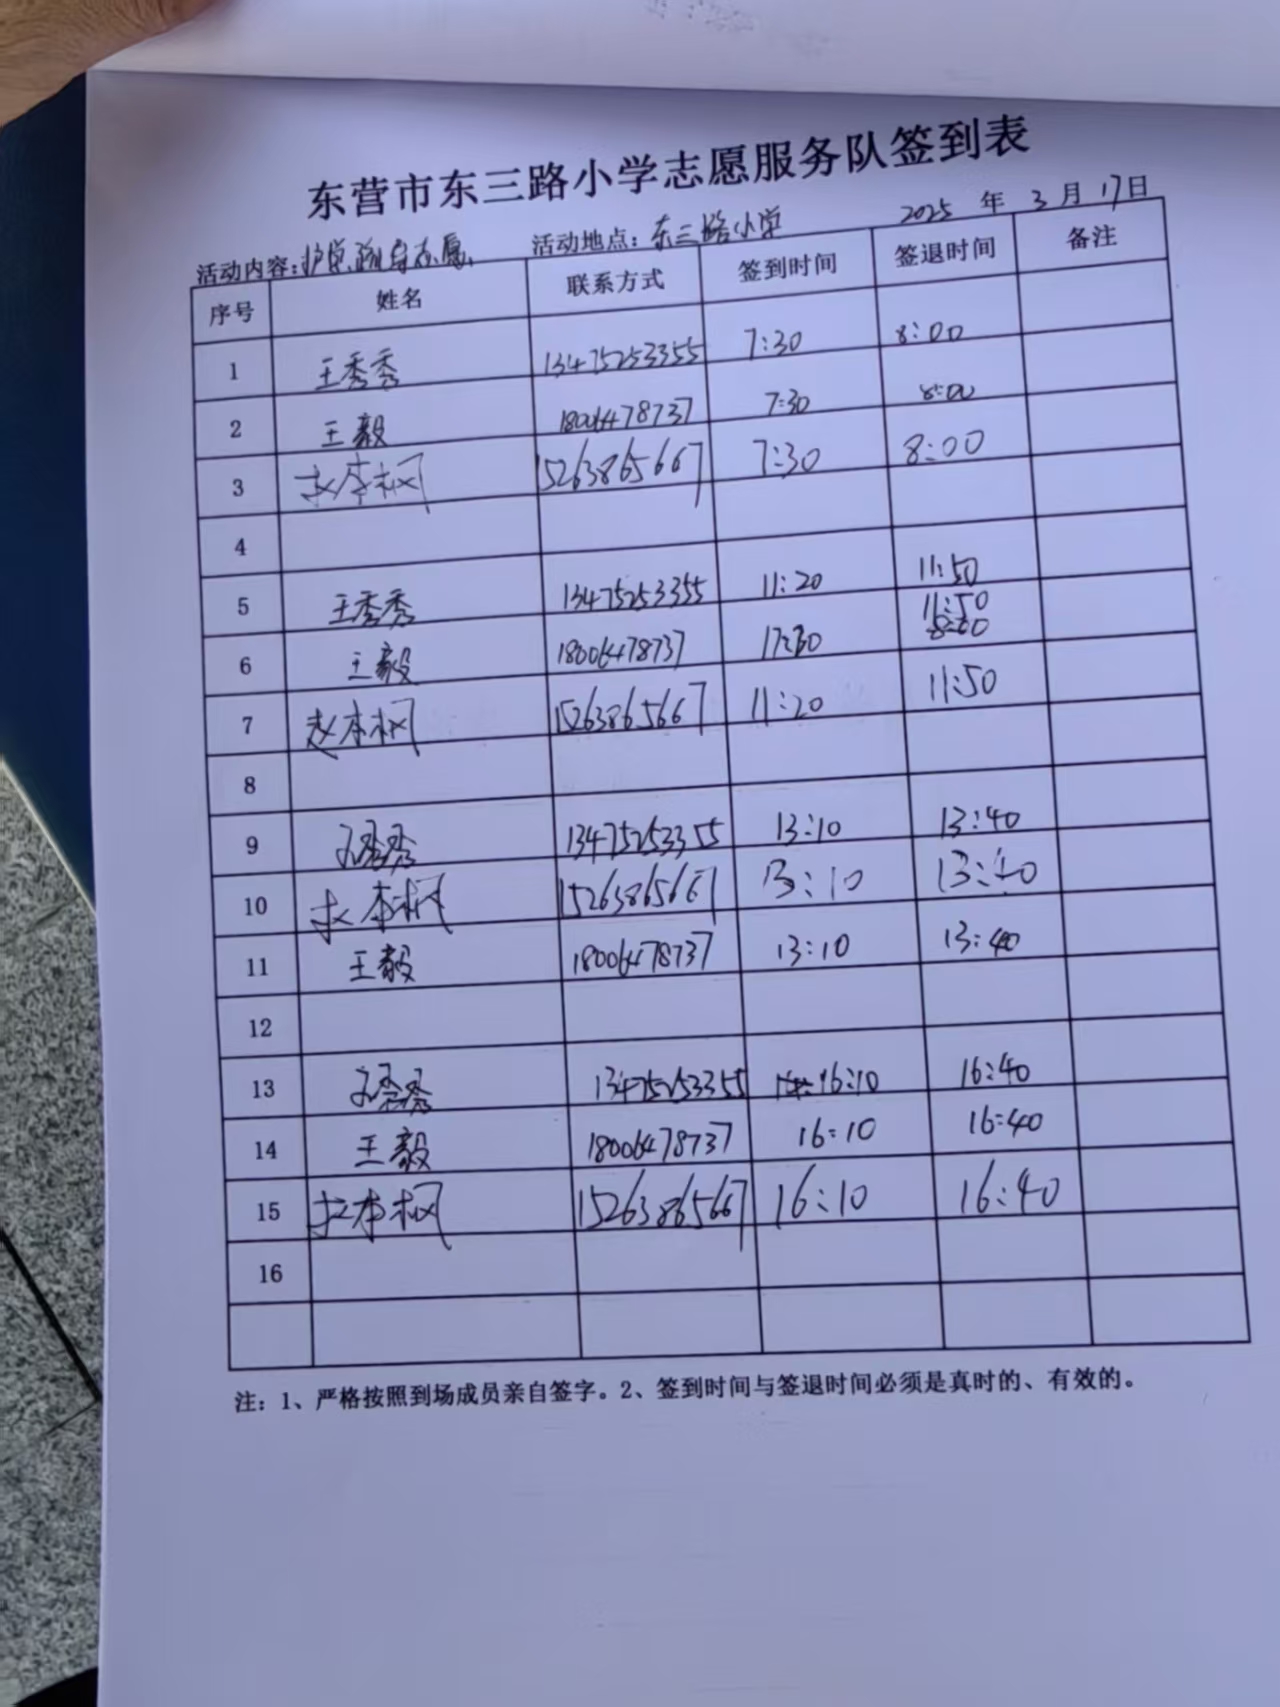 东营市东三路小学志愿服务队签到表
活动内容:护学 志愿 活动地点:东三路小学 2025年3月17日
序号 姓名 联系方式 签到时间 签退时间 备注
1 王秀秀 13475253355 7:30 8:00
2 王毅 18006478737 7:30 8:00
3 赵本枫 15263865667 7:30 8:00
4
5 王秀秀 13475253355 11:20 11:50
6 王毅 18006478737 11:50
7 赵本枫 15263865667 11:20 11:50
8
9 王秀秀 13475253355 13:10 13:40
10 赵本枫 15263865667 13:10 13:40
11 王毅 18006478737 13:10 13:40
12
13 王秀秀 13475253355 16:10 16:40
14 王毅 18006478737 16:10 16:40
15 赵本枫 15263865667 16:10 16:40
16
注:1、严格按照到场成员亲自签字。2、签到时间与签退时间必须是真时的、有效的。